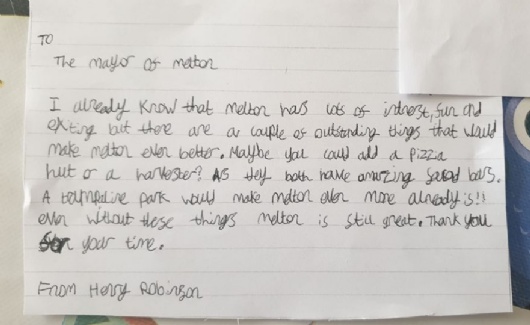 TO
The mayor of melton
I already know that melton has lots of intrest, fun and
exting but there are a couple of outstanding things that would
make melton even better. Maybe you could add a pizzia
hut or a harvester? As they both have amazing salad bars.
A trampoline park would make melton even more already is!!
even without these things melton is still great. Thank you
for your time.
From Henry Robinson